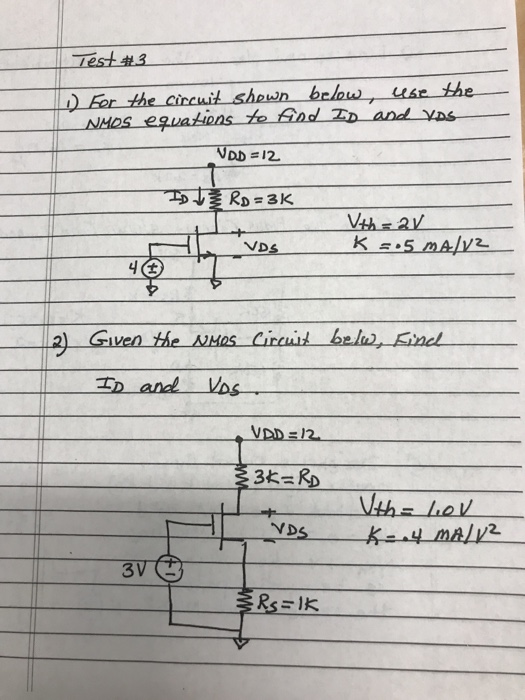 Test #3
1) For the circuit shown below, use the
NMOS equations to find ID and VDS
VDD = 12
ID ↓ RD = 3K
Vth = 2V
+
VDS
-
K = .5 mA/V2
4 ±
2) Given the NMOS Circuit belw, Find
ID and VDS.
VDD = 12
3K = RD
Vth = 1.0V
+
VDS
-
K = .4 mA/V2
3V ±
RS = 1K